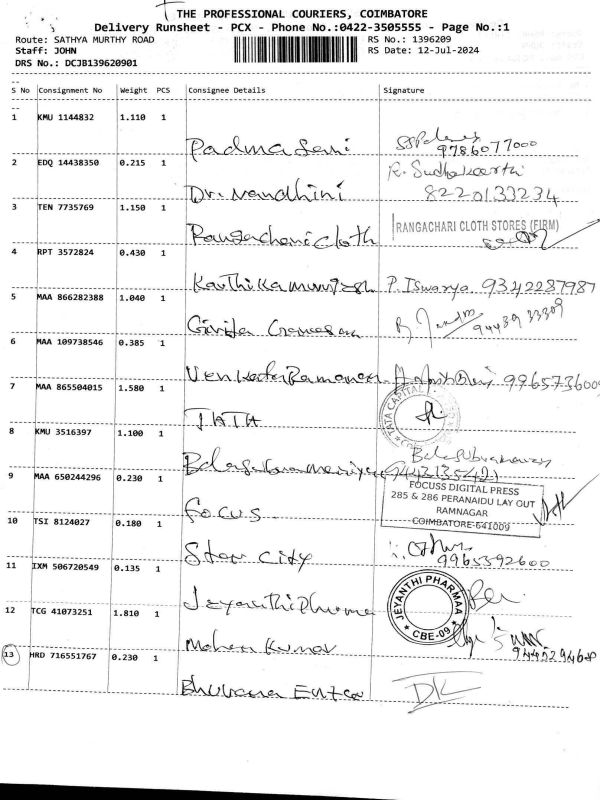 THE PROFESSIONAL COURIERS, COIMBATORE
Delivery Runsheet - PCX - Phone No.:0422-3505555 - Page No.:1
Route: SATHYA MURTHY ROAD RS No.: 1396209
Staff: JOHN RS Date: 12-Jul-2024
DRS No.: DCJB139620901
S No Consignment No Weight PCS Consignee Details Signature
1 KMU 1144832 1.110 1
Padma 9786077000
2 EDQ 14438350 0.215 1 R. Sudhakarthi
Dr. Nandhini 8220133234
3 TEN 7735769 1.150 1 RANGACHARI CLOTH STORES (FIRM)
Rangachari Cloth
4 RPT 3572824 0.430 1
Karthika P. Iswarya 9342287987
5 MAA 866282388 1.040 1
94439 33309
6 MAA 109738546 0.385 1
Venkata Ramanan 9965736009
7 MAA 865504015 1.580 1 TATA CAPITAL
TATA
8 KMU 3516397 1.100 1 Balasubramaniam
Balasubramaniyam 9443135421
9 MAA 650244296 0.230 1 FOCUSS DIGITAL PRESS
285 & 286 PERANAIDU LAY OUT
RAMNAGAR
Focus COIMBATORE-641009
10 TSI 8124027 0.180 1
Star City 9965592600
11 IXM 506720549 0.135 1 JEYANTHI PHARMAA
Jeyanthi Pharma CBE-09
12 TCG 41073251 1.810 1
Mahesh Kumar
13 HRD 716551767 0.230 1
Bhuvana DK